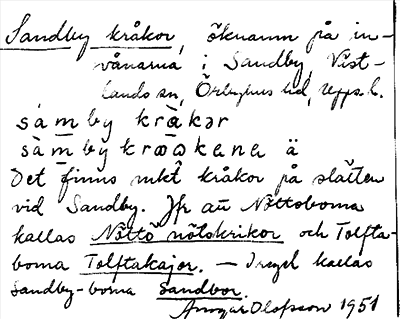 Sandby kråkor, öknamn på in-
vånarna i Sandby, Väst-
lands sn, Örbyhus hd, Upps. l.
sàmby kràkər
sàmby kræωkana ä
Det finns mkt kråkor på slätten
vid Sandby. Jfr att Nöttöborna
kallas Nöttö nötskrikor och Tolfta-
borna Tolftakajor. — Iregel kallas
Sandby-borna Sandbor.
Ansgar Olofsson 1951